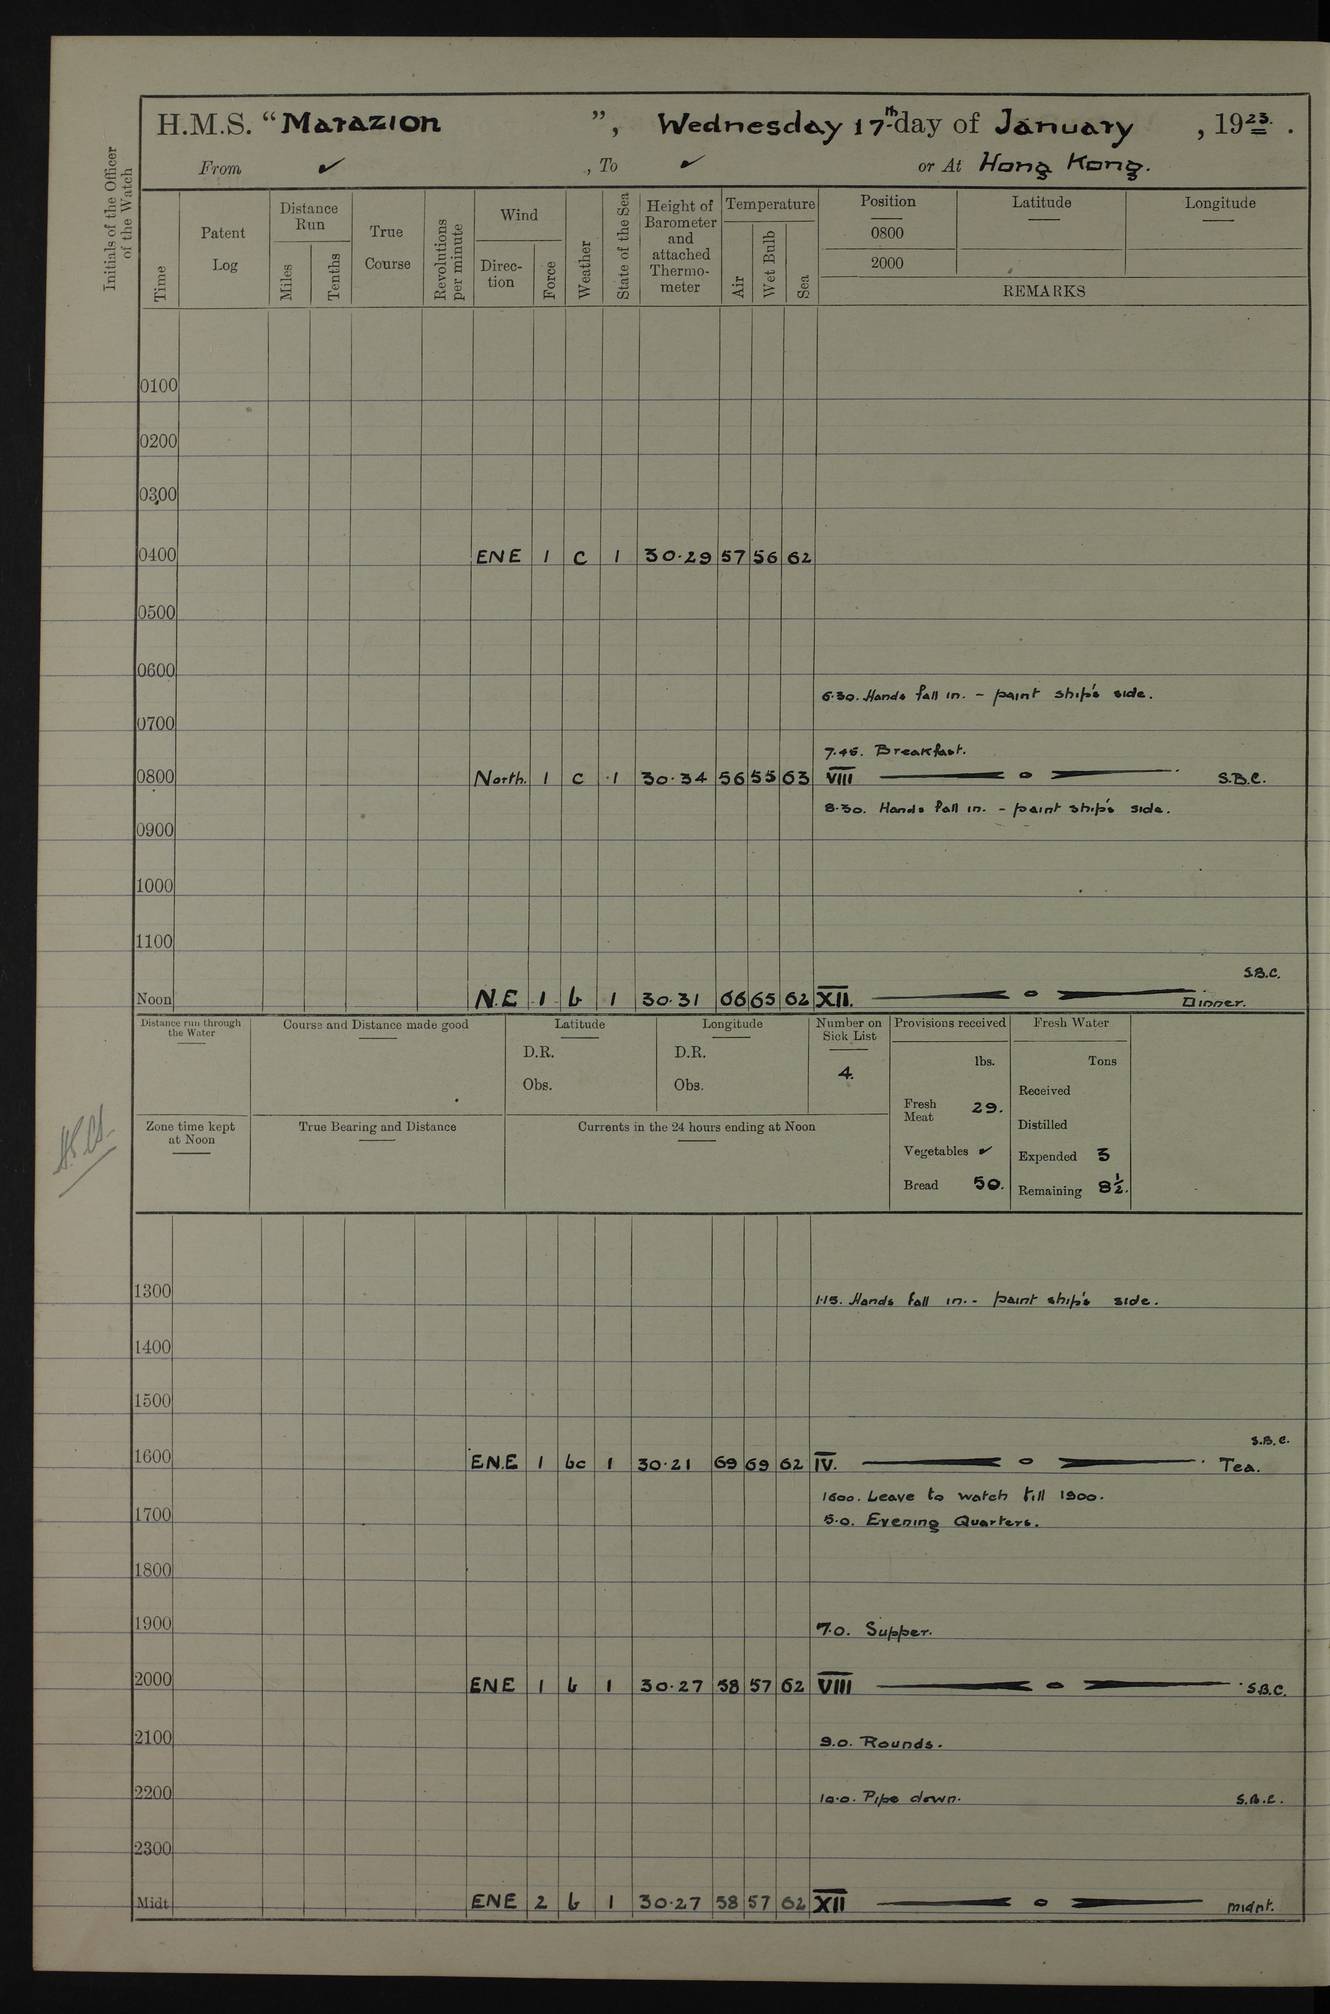 H.M.S. “Marazion”, Wednesday 17th day of January, 1923.
From ✓, To ✓ or At Hong Kong.
Initials of the Officer of the Watch
Time
Patent Log
Distance Run
Miles
Tenths
True Course
Revolutions per minute
Wind
Direction
Force
Weather
State of the Sea
Height of Barometer and attached Thermometer
Temperature
Air
Wet Bulb
Sea
Position
Latitude
Longitude
0800
2000
REMARKS
0100
0200
0300
0400 ENE 1 c 1 30·29 57 56 62
0500
0600
6·30. Hands fall in. - paint ship's side.
0700
7·45. Breakfast.
0800 North. 1 c 1 30·34 56 55 63 VIII S.B.C.
8·30. Hands fall in. - paint ship's side.
0900
1000
1100
S.B.C.
Noon N.E 1 b 1 30·31 66 65 62 XII. Dinner.
Distance run through the Water
Course and Distance made good
Latitude
D.R.
Obs.
Longitude
D.R.
Obs.
Number on Sick List
4.
Provisions received
lbs.
Fresh Meat 29.
Vegetables ✓
Bread 50.
Fresh Water
Tons
Received
Distilled
Expended 3
Remaining 8½.
Zone time kept at Noon
True Bearing and Distance
Currents in the 24 hours ending at Noon
1300
1·15. Hands fall in. - paint ship's side.
1400
1500
S.B.C.
1600 ENE 1 bc 1 30·21 69 69 62 IV. Tea.
1600. Leave to watch till 1900.
1700
5·0. Evening Quarters.
1800
1900
7·0. Supper.
2000 ENE 1 b 1 30·27 58 57 62 VIII S.B.C.
2100
9.0. Rounds.
2200
10·0. Pipe down. S.B.C.
2300
Midt ENE 2 b 1 30·27 58 57 62 XII midnt.